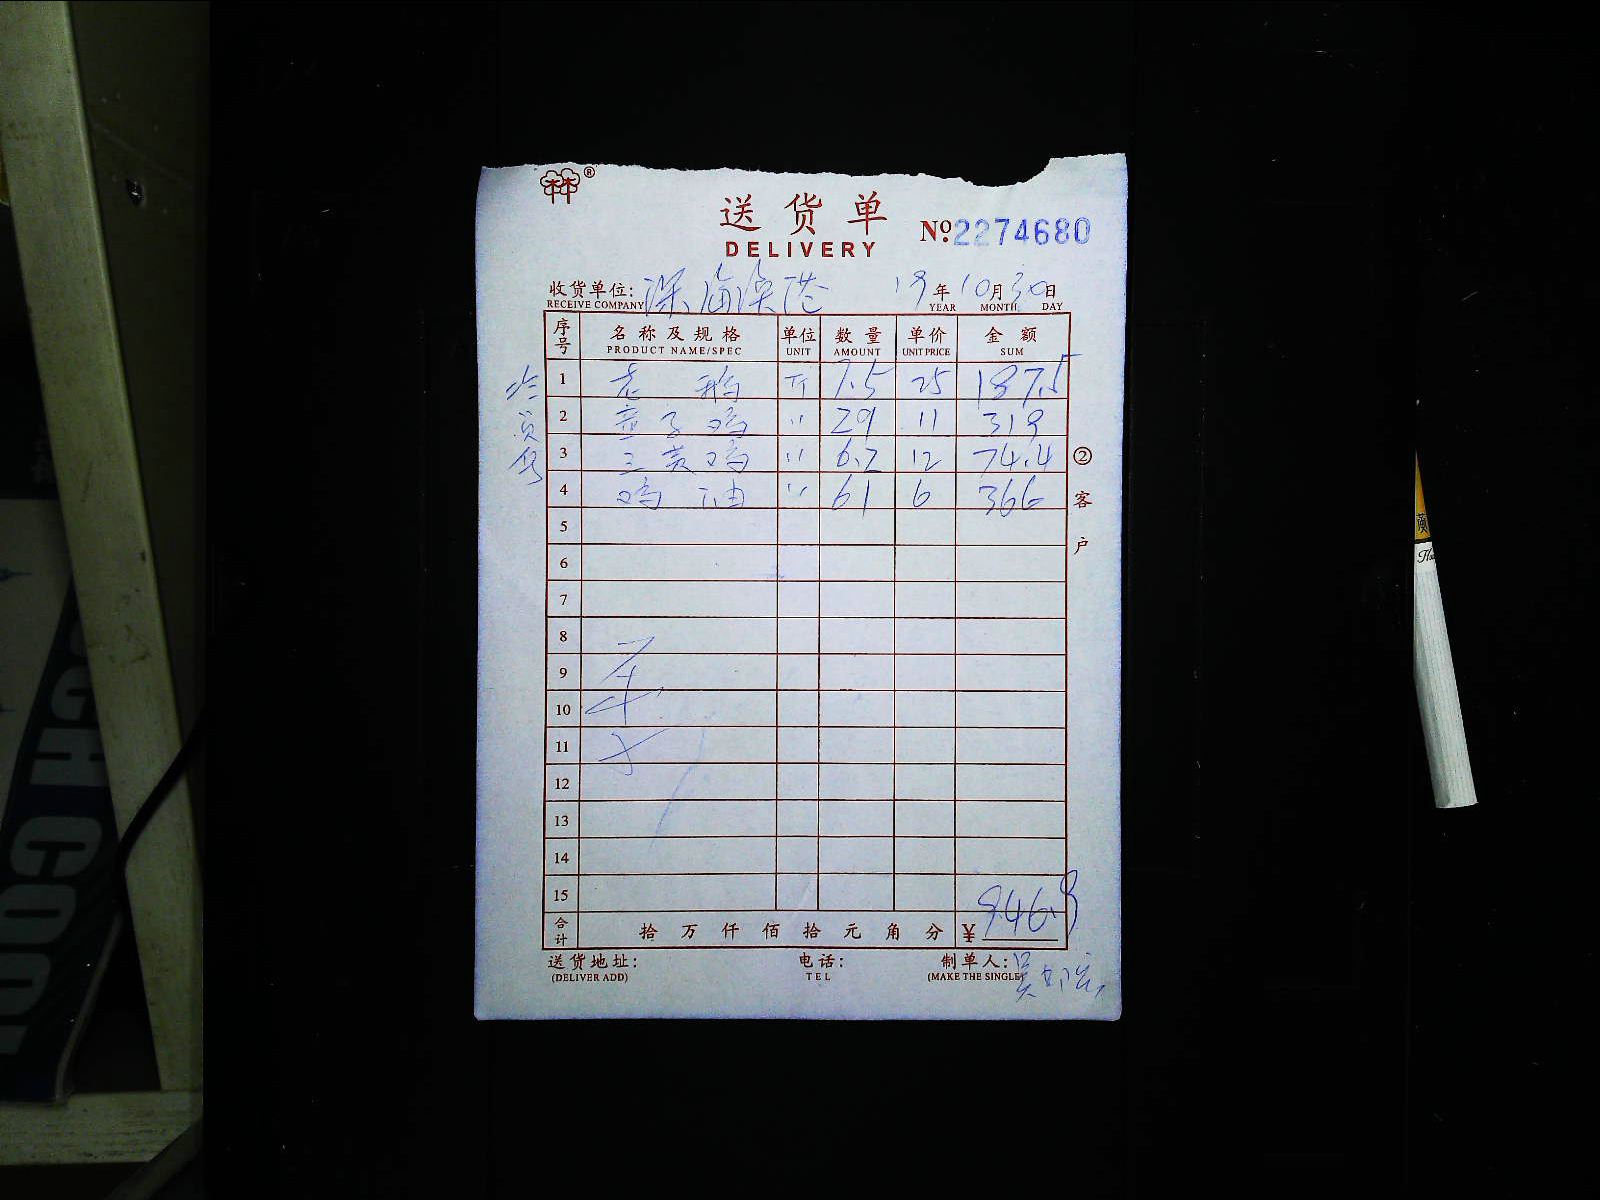 林®
送货单
DELIVERY
№ 2274680
收货单位: 深海深港 19年10月30日
RECEIVE COMPANY YEAR MONTH DAY
序号 名称及规格 单位 数量 单价 金额
PRODUCT NAME/SPEC UNIT AMOUNT UNIT PRICE SUM
1 老鹅 斤 7.5 25 187.5
2 童子鸡 〃 29 11 319
3 三黄鸡 〃 6.2 12 74.4
4 鸡油 〃 61 6 366
5
6
7
8
9
10
11
12
13
14
15
合计 拾万仟佰拾元角分 ¥ 946.9
② 客户
送货地址: 电话: 制单人: 吴
(DELIVER ADD) TEL (MAKE THE SINGLE)
COOL